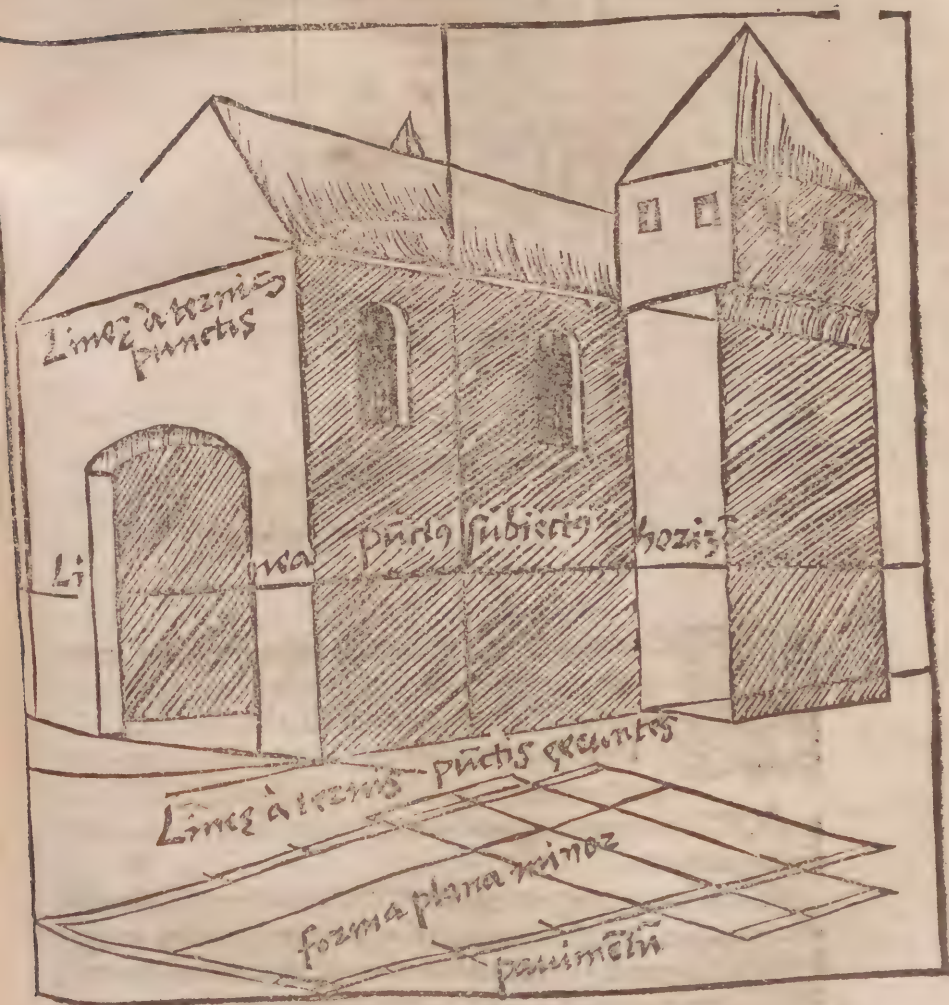 Lineȩ à ternis
punctis
Linea pūctꝯ subiectꝯ horizō
Lineȩ à ternis pūctis exeuntes
forma plana minor
pauimētū